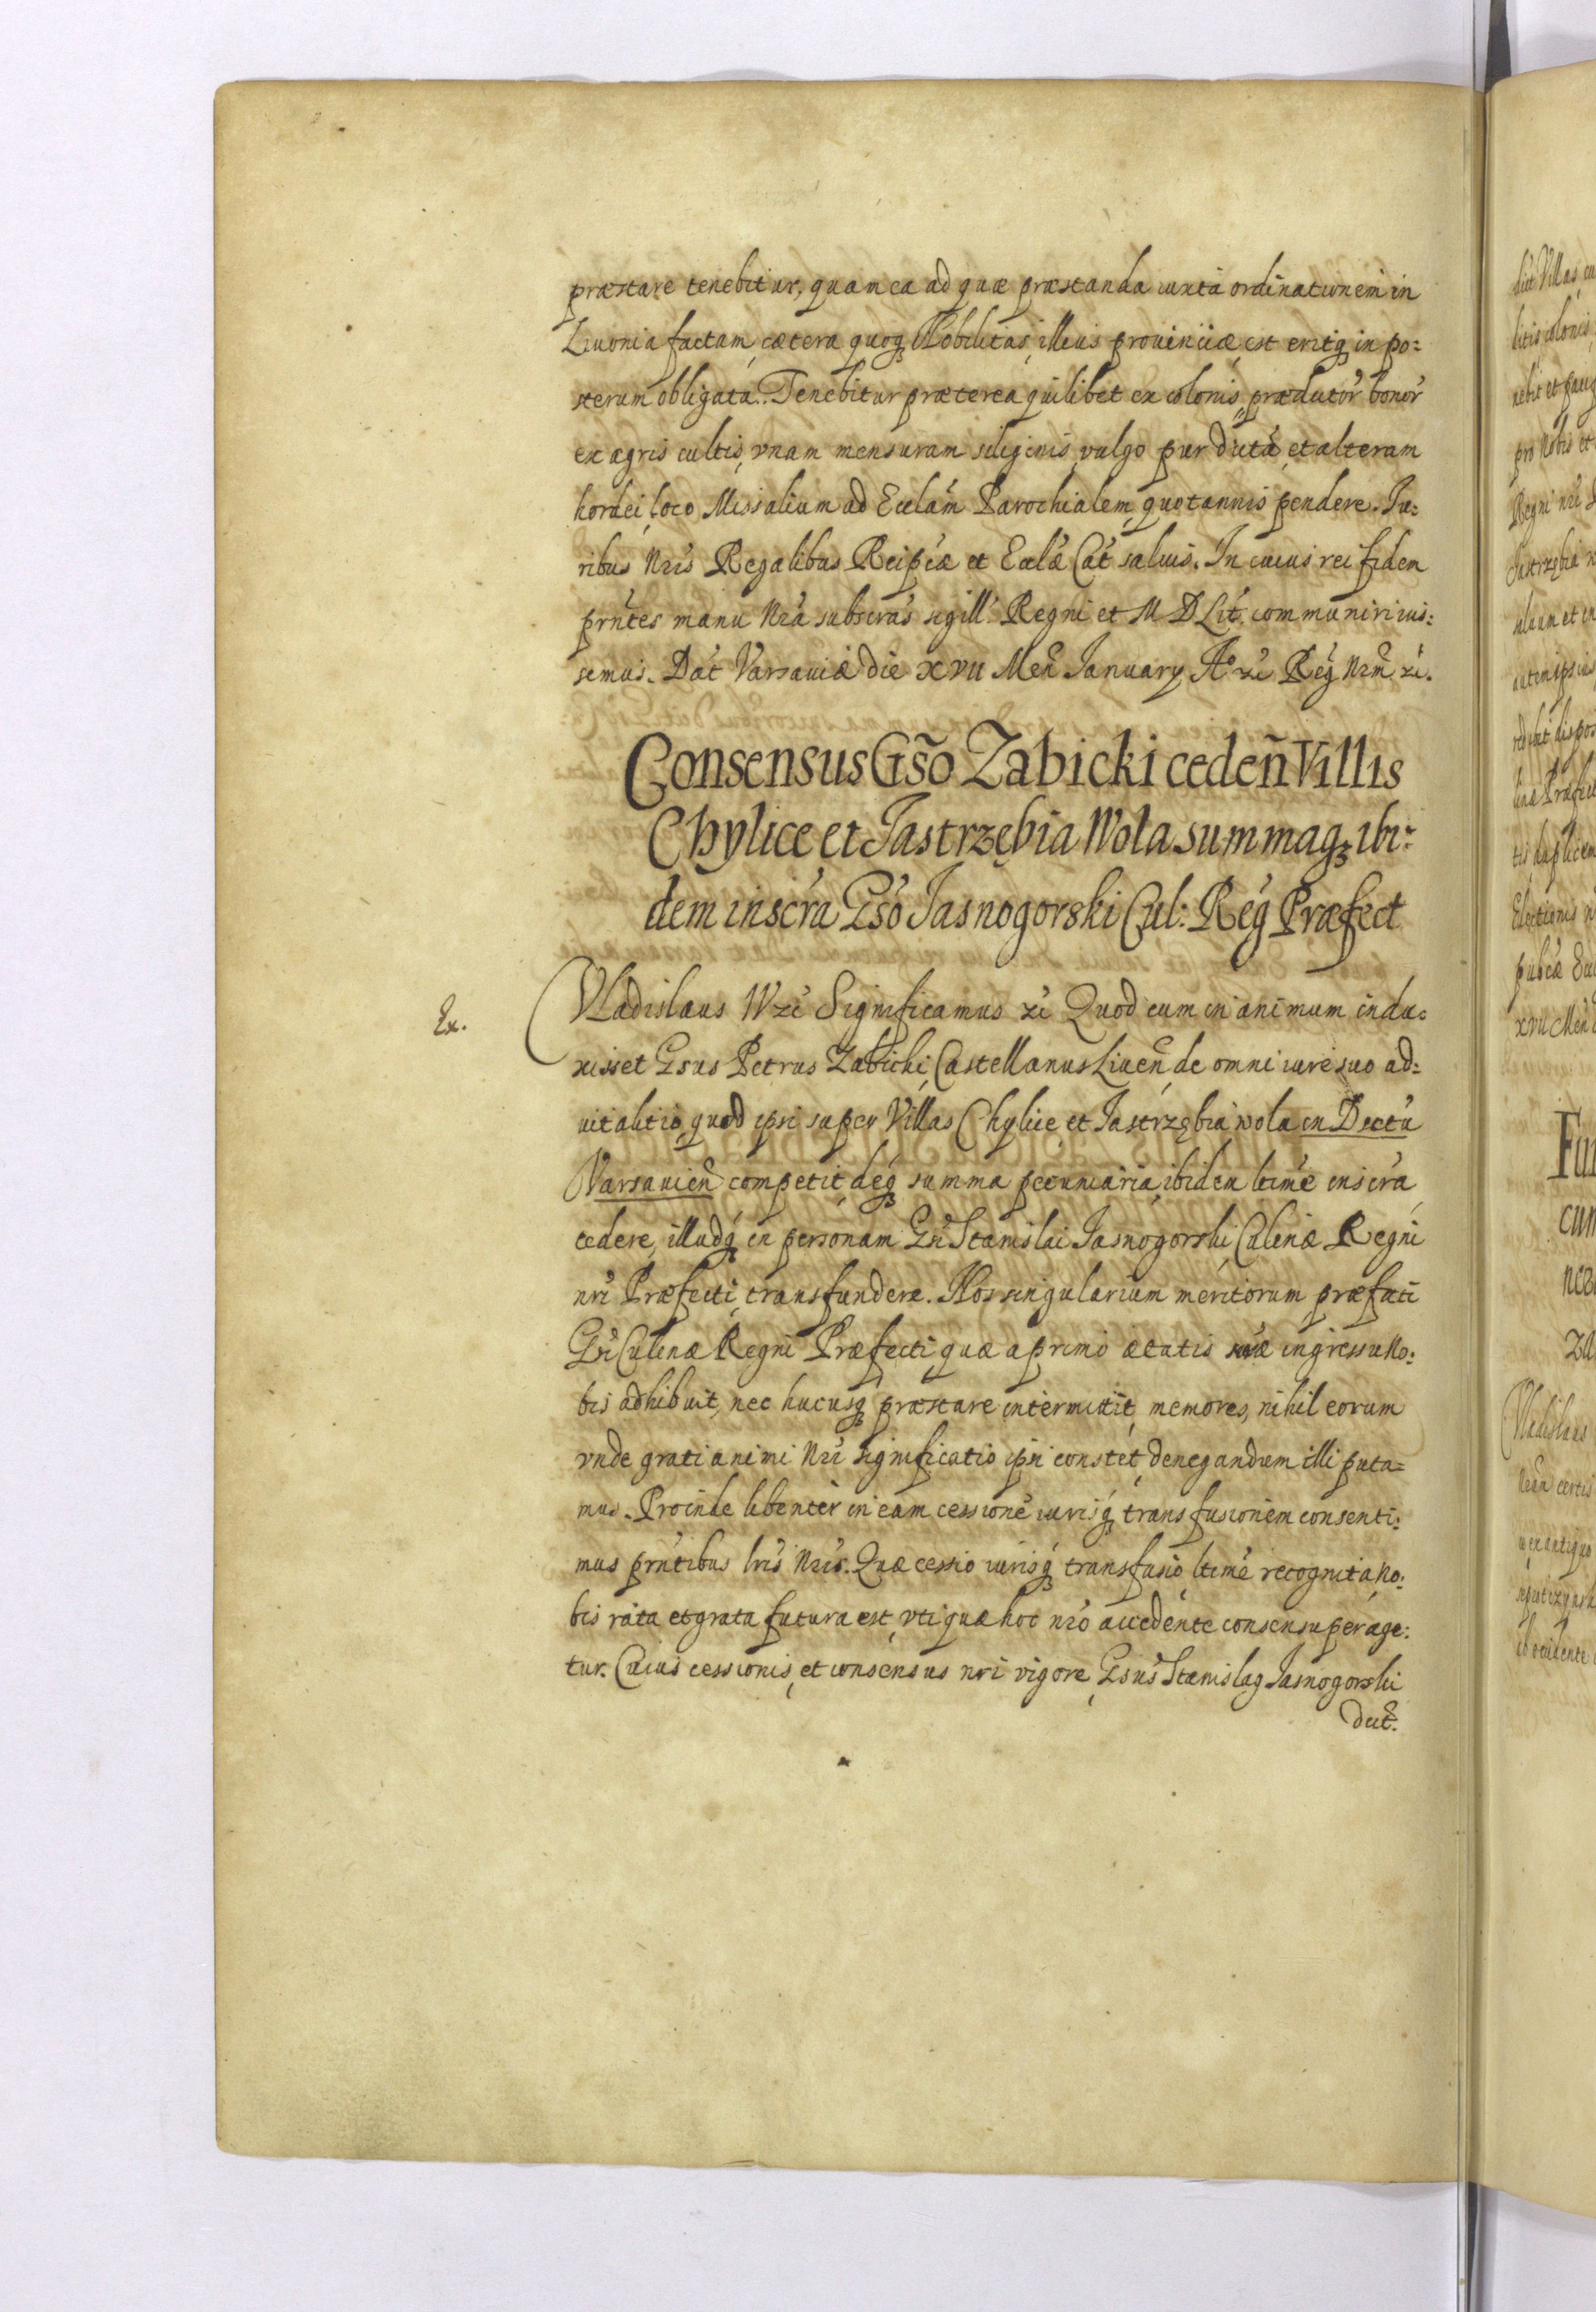 præstare tenebitur, quam ea ad quæ præstanda iuxta ordinationem in
Liuonia factam, cætera quoq Nobilitas illius prouinciæ, est eritq in po:
sterum obligata. Tenebitur præterea quilibet ex colonis prædictor̃ bonor̃
ex agris cultis, vnam mensuram siliginis vulgo pur dictã, et alteram
hordei, loco Missalium ad Ecclãm Parochialem quotannis pendere. Iu:
ribus Nr̃is Regalibus Reip̃cæ et Eccl̃æ Cat̃ saluis. In cuius rei fidem
pr̃ntes manu Nr̃a subscr̃as sigill̃ Regni et M D Lit̃. communiri ius:
semus. Dat̃ Varsauiæ die XVII Meñ January Aº zc̃ Reg̃ Nr̃m zc̃.
Consensus Gs̃o Zabicki cedeñ Villis
Chylice, et Jastrzębia Wola summaq, ibi:
dem inscr̃a Gs̃o Jasnogorski Cul: Reg̃ Præfect
Ex.
Vladislaus IV zc̃ Significamus zc̃ Quod cum in animum indu:
xisset Gsus Petrus Zabicki, Castellanus Liueñ de omni iure suo ad:
uitalitio, quod ipsi super Villas Chylice et Jastrzębia wola in Dr̃ctu
Varsauieñ competit, deq̃ summa pecuniaria, ibidem ltimẽ inscr̃a
cedere, illudq̃ in personam Gñ Stanislai Jasnogorski Culinæ Regni
nr̃i Præfecti, transfundere. Nos singularium meritorum præfati
Gsĩ Culinæ Regni Præfecti, quæ a primo ætatis suæ ingressu No:
bis adhibuit, nec hucusq̃ præstare intermittit, memores, nihil eorum
vnde grati animi Nr̃i significatio ipsi constet, denegandum illi puta=
mus. Proinde libenter in eam cessionẽ iurisq̃ transfusionem consenti:
mus pr̃ntibus lr̃is Nr̃is. Quæ cessio iurisq̃ transfusio, ltimẽ recognita, No:
bis rata et grata futura est, vti quæ hoc nr̃o accedente consensu perage:
tur. Cuius cessionis, et consensus nr̃i vigore, Gsus Stanislaq Jasnogorski
dict̃.